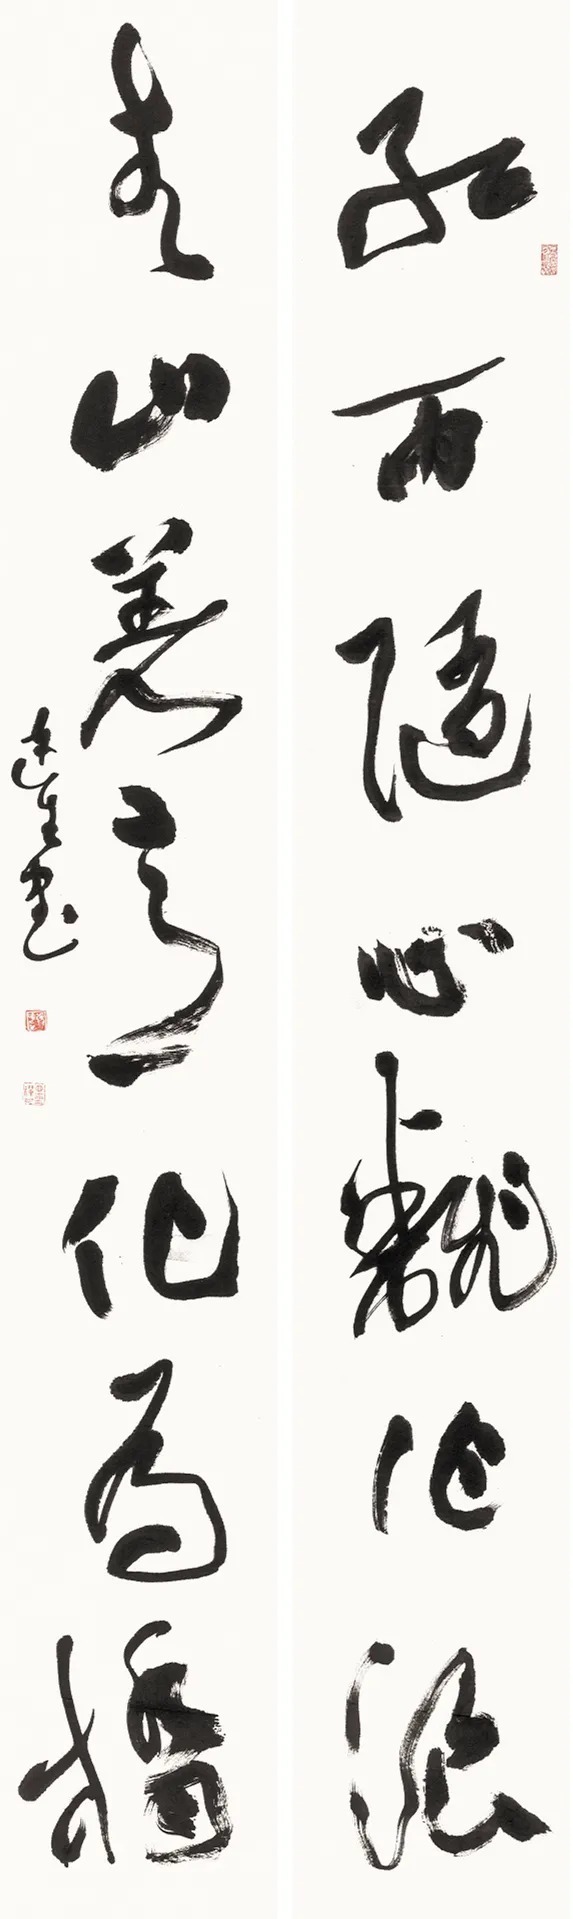 红雨随心翻作浪
青山着意化为桥
建生书